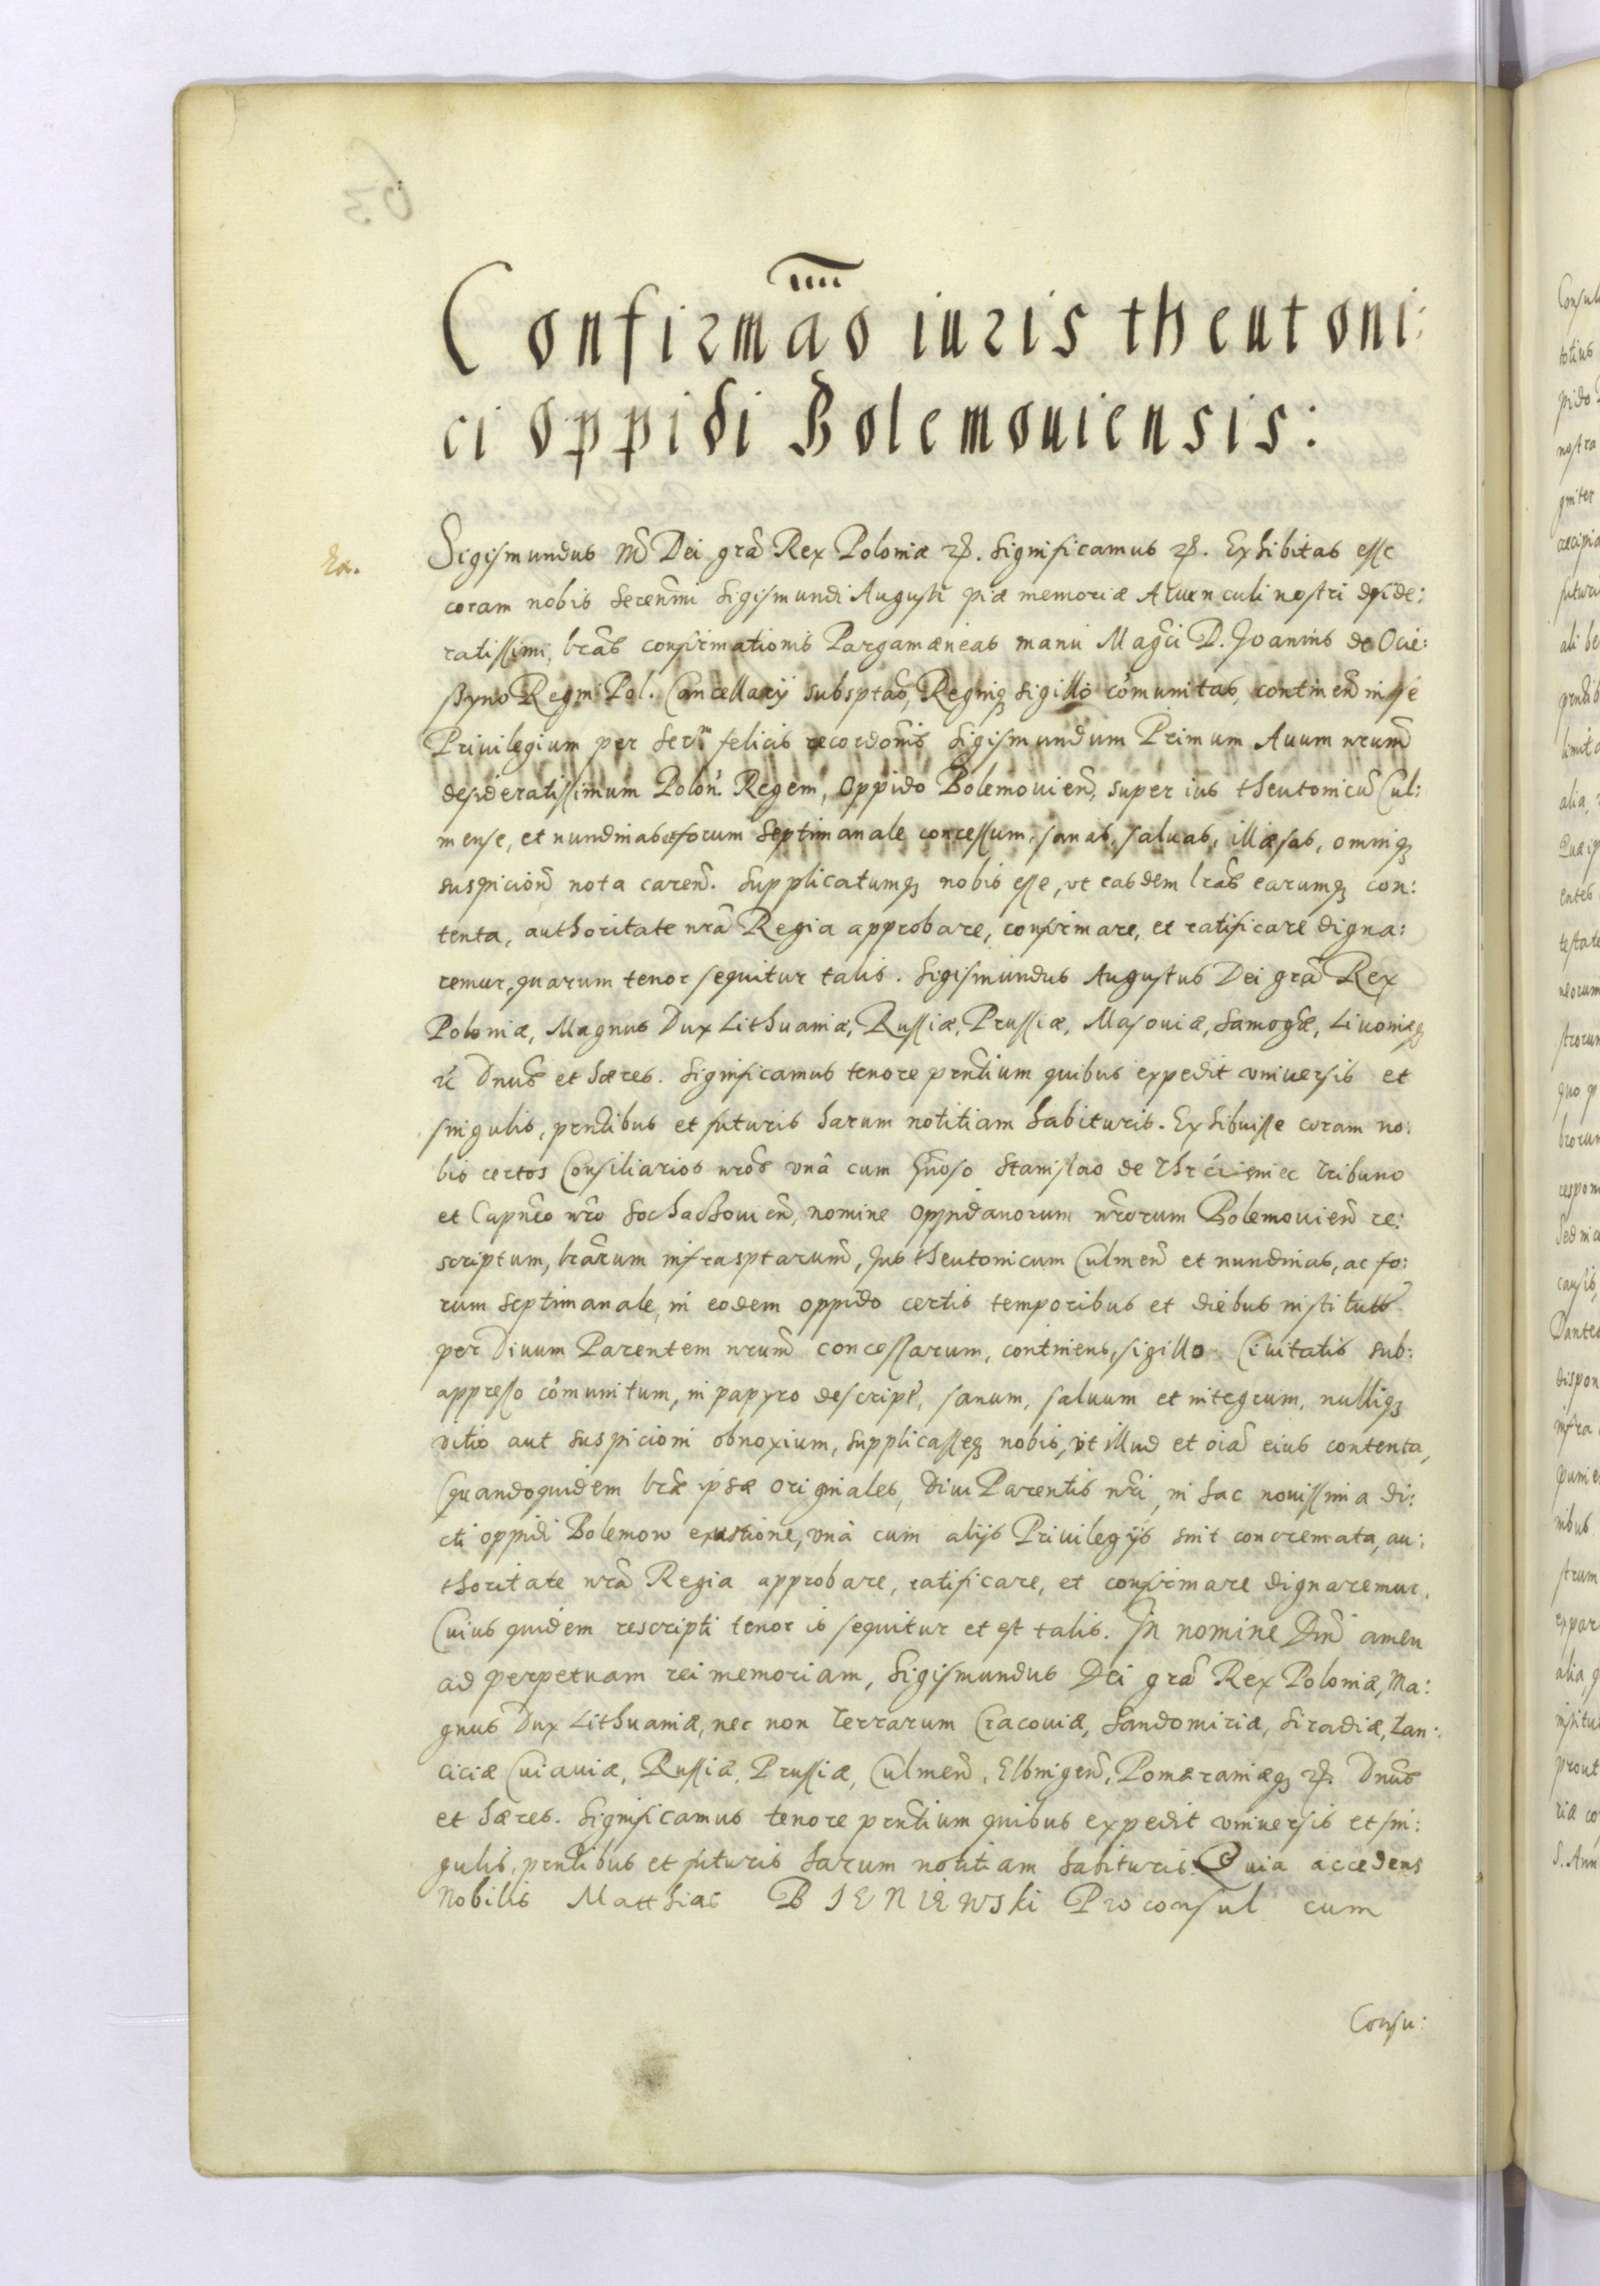 Confirmao iuris theutoni:
ci oppidi Bolemouiensis:
Ea.
Sigismundus Dei gra Rex Poloniæ Significamus Exhibitas esse
coram nobis Serenmi Sigismundi Augusti piæ memoriæ Auunculi nostri deside:
ratissimi, lras confirmationis Pargamæneas manu Magci D. Joannis de Ocie:
ssyno Regni Pol. Cancellarij subsptas, Regniq sigillo cómunitas, continen in se
Priuilegium per Serm felicis recordonis Sigismundum Primum Auum nrum
desideratissimum Polon. Regem, Oppido Bolemouien, super ius theutonicu Cul:
mense, et nundinas forum Septimanale concessum, sanas, saluas, illæsas, omniq
suspicion nota caren. Supplicatumq nobis esse, vt easdem lras earumq con:
tenta, authoritate nra Regia approbare, confirmare, et ratificare digna:
remur, quarum tenor sequitur talis. Sigismundus Augustus Dei gra Rex
Poloniæ, Magnus Dux Lithuaniæ, Russiæ, Prussiæ, Masouiæ, Samogæ, Liuoniæq
Dnus et hæres. Significamus tenore prntium quibus expedit vniuersis et
singulis, prntibus et futuris harum notitiam habituris. Exhibuisse coram no:
bis certos Consiliarios nros vnâ cum Gnoso Stanislao de Tribuno
et Capneo nro Sochachouien, nomine oppidanorum nrorum Bolemouien re:
scriptum, lrarum infrasptarum, Jus theutonicum Culmen et nundinas, ac fo:
rum septimanale, in eodem oppido certis temporibus et diebus institutt
per Diuum Parentem nrum concessarum, continens, sigillo Ciuitatis sub:
appresso cómunitum, in papyro descript, sanum, saluum et integrum, nulliq
vitio aut suspicioni obnoxium, supplicasseq nobis, vt illud et oia eius contenta,
quandoquidem lræ ipsæ originales, Diui Parentis nri, in hac nouissima di:
cti oppidi Bolemow exustione, vnà cum alijs Priuilegijs sint concremata, au:
thoritate nra Regia approbare, ratificare, et confirmare dignaremur.
Cuius quidem rescripti tenor is sequitur et est talis. In nomine Dni amen
ad perpetuam rei memoriam, Sigismundus Dei gra Rex Poloniæ, Ma:
gnus Dux Lithuaniæ, nec non Terrarum Cracouiæ, Sandomiriæ, Siradiæ, Lan:
ciciæ Cuiauiæ, Russiæ, Prussiæ, Culmen, Elbingen, Pomæraniæq Dnus
et hæres. Significamus tenore prntium quibus expedit vniuersis et sin:
gulis, prntibus et futuris harum notitiam habituris. Quia accedens
Nobilis Matthias BIENIEWski Proconsul cum
Consu: